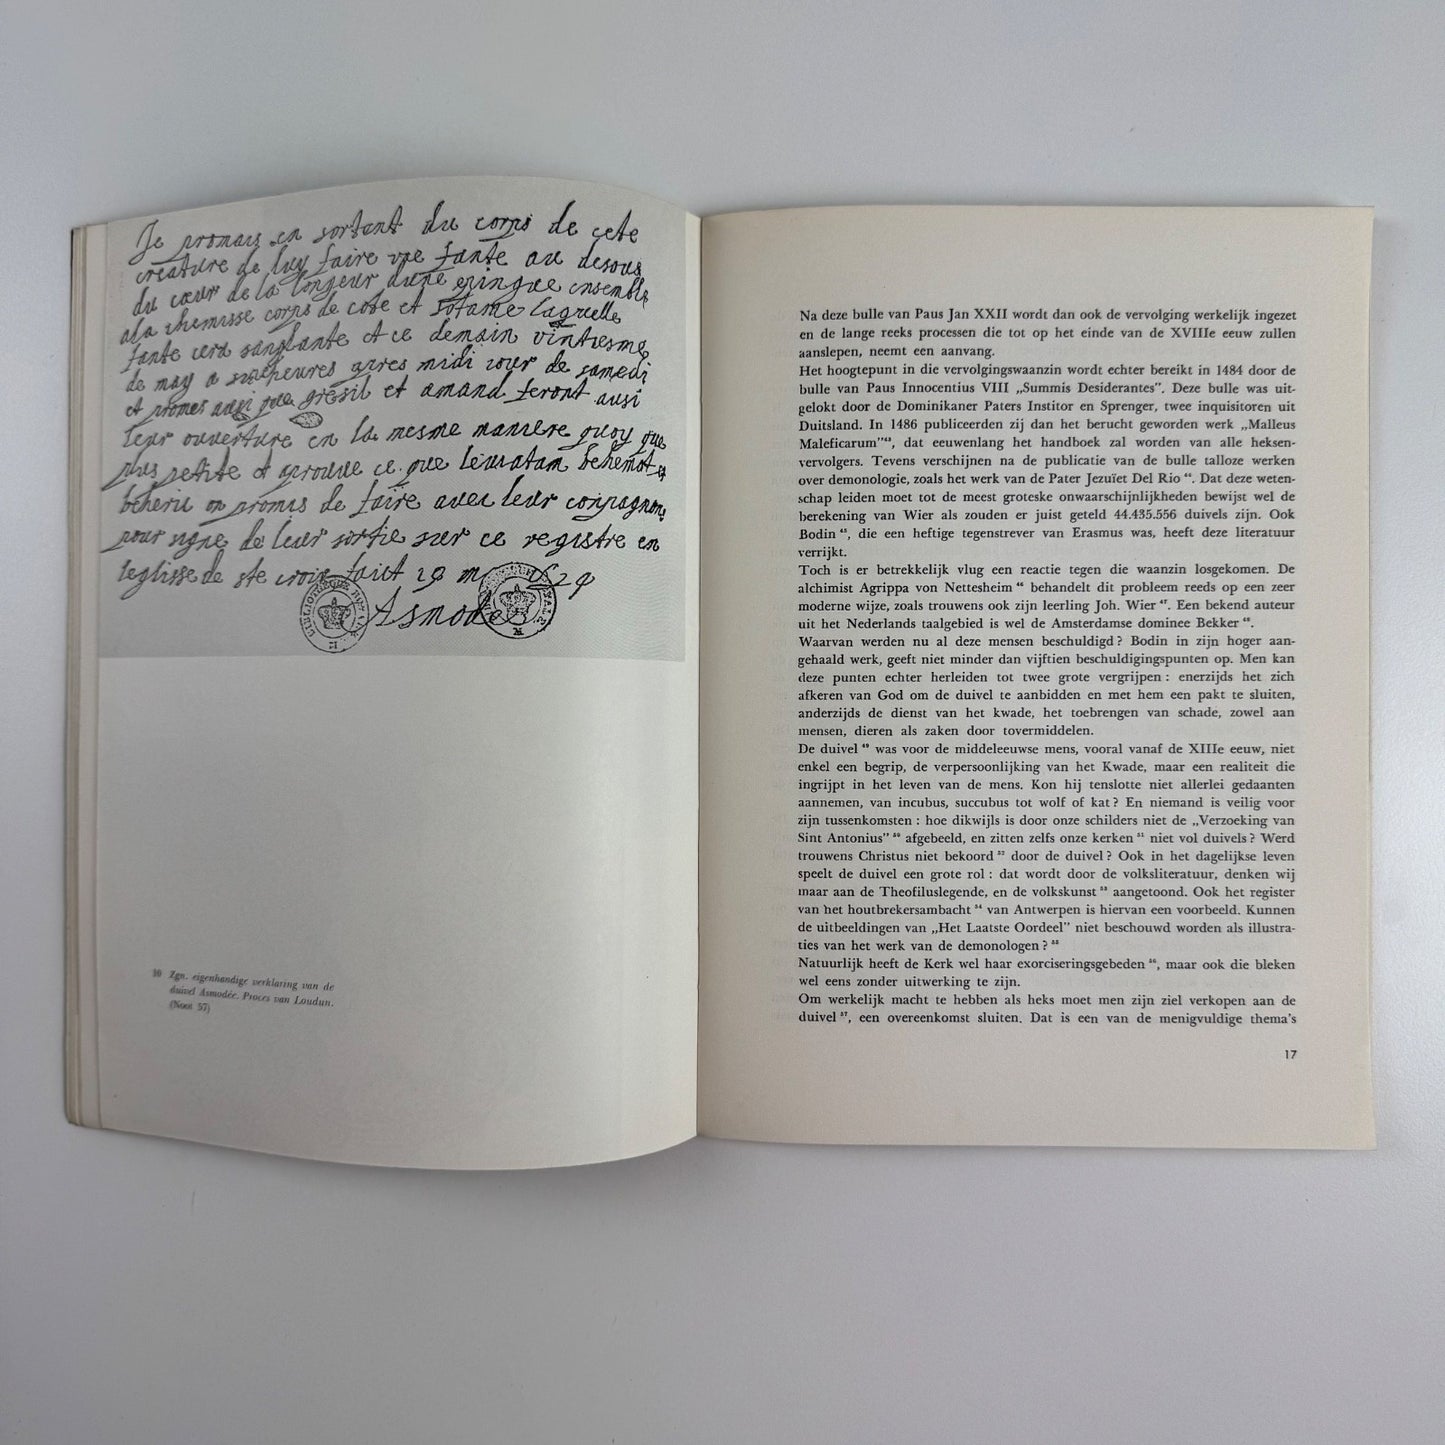 Je promais en sortant du corps de cete
creature de luy faire vne fante au desous
du cœur de la longeur dune epingue ensemble
a la chemisse corps de cote et sotame laquelle
fante cera sanglante et ce demain vintiesme
de may a heures apres midi iour de samedi
et promes ausi que gresil et amand feront ausi
leur ouverture en la mesme maniere quoy que
plus petite et aprouue ce que leuiatam behemot
beherit on promis de faire avec leur compagnon
pour signe de leur sortie sur ce registre en
leglisse de ste croix faict 29 m
Asmodee
10 Zgn. eigenhandige verklaring van de
duivel Asmodée. Proces van Loudun.
(Noot 57)
Na deze bulle van Paus Jan XXII wordt dan ook de vervolging werkelijk ingezet
en de lange reeks processen die tot op het einde van de XVIIIe eeuw zullen
aanslepen, neemt een aanvang.
Het hoogtepunt in die vervolgingswaanzin wordt echter bereikt in 1484 door de
bulle van Paus Innocentius VIII „Summis Desiderantes”. Deze bulle was uit-
gelokt door de Dominikaner Paters Institor en Sprenger, twee inquisitoren uit
Duitsland. In 1486 publiceerden zij dan het berucht geworden werk „Malleus
Maleficarum”⁴³, dat eeuwenlang het handboek zal worden van alle heksen-
vervolgers. Tevens verschijnen na de publicatie van de bulle talloze werken
over demonologie, zoals het werk van de Pater Jezuïet Del Rio ⁴⁴. Dat deze weten-
schap leiden moet tot de meest groteske onwaarschijnlijkheden bewijst wel de
berekening van Wier als zouden er juist geteld 44.435.556 duivels zijn. Ook
Bodin ⁴⁵, die een heftige tegenstrever van Erasmus was, heeft deze literatuur
verrijkt.
Toch is er betrekkelijk vlug een reactie tegen die waanzin losgekomen. De
alchimist Agrippa von Nettesheim ⁴⁶ behandelt dit probleem reeds op een zeer
moderne wijze, zoals trouwens ook zijn leerling Joh. Wier ⁴⁷. Een bekend auteur
uit het Nederlands taalgebied is wel de Amsterdamse dominee Bekker ⁴⁸.
Waarvan werden nu al deze mensen beschuldigd? Bodin in zijn hoger aan-
gehaald werk, geeft niet minder dan vijftien beschuldigingspunten op. Men kan
deze punten echter herleiden tot twee grote vergrijpen : enerzijds het zich
afkeren van God om de duivel te aanbidden en met hem een pakt te sluiten,
anderzijds de dienst van het kwade, het toebrengen van schade, zowel aan
mensen, dieren als zaken door tovermiddelen.
De duivel ⁴⁹ was voor de middeleeuwse mens, vooral vanaf de XIIIe eeuw, niet
enkel een begrip, de verpersoonlijking van het Kwade, maar een realiteit die
ingrijpt in het leven van de mens. Kon hij tenslotte niet allerlei gedaanten
aannemen, van incubus, succubus tot wolf of kat? En niemand is veilig voor
zijn tussenkomsten : hoe dikwijls is door onze schilders niet de „Verzoeking van
Sint Antonius” ⁵⁰ afgebeeld, en zitten zelfs onze kerken ⁵¹ niet vol duivels? Werd
trouwens Christus niet bekoord ⁵² door de duivel? Ook in het dagelijkse leven
speelt de duivel een grote rol : dat wordt door de volksliteratuur, denken wij
maar aan de Theofiluslegende, en de volkskunst ⁵³ aangetoond. Ook het register
van het houtbrekersambacht ⁵⁴ van Antwerpen is hiervan een voorbeeld. Kunnen
de uitbeeldingen van „Het Laatste Oordeel” niet beschouwd worden als illustra-
ties van het werk van de demonologen? ⁵⁵
Natuurlijk heeft de Kerk wel haar exorciseringsgebeden ⁵⁶, maar ook die bleken
wel eens zonder uitwerking te zijn.
Om werkelijk macht te hebben als heks moet men zijn ziel verkopen aan de
duivel ⁵⁷, een overeenkomst sluiten. Dat is een van de menigvuldige thema’s
17